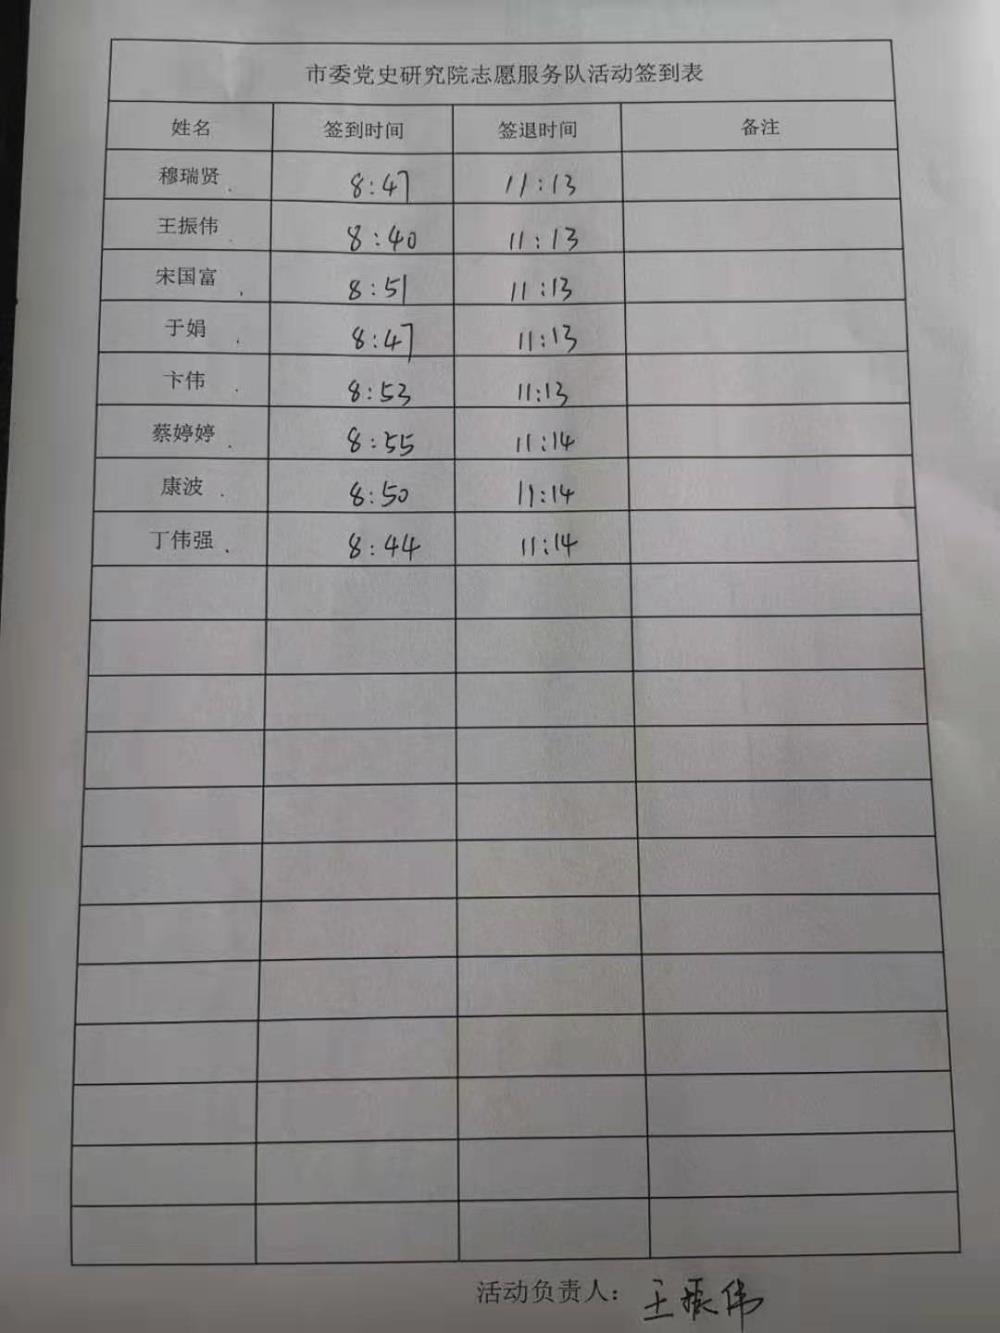 市委党史研究院志愿服务队活动签到表
姓名 签到时间 签退时间 备注
穆瑞贤 8:47 11:13
王振伟 8:40 11:13
宋国富 8:51 11:13
于娟 8:47 11:13
卞伟 8:53 11:13
蔡婷婷 8:55 11:14
康波 8:50 11:14
丁伟强 8:44 11:14
活动负责人：王振伟